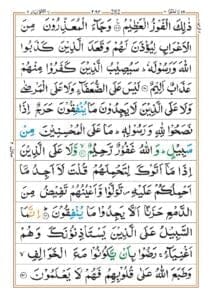 ذٰلِكَ الْفَوْزُ الْعَظِيْمُ ۝ وَجَآءَ الْمُعَذِّرُوْنَ مِنَ
الْاَعْرَابِ لِيُؤْذَنَ لَهُمْ وَقَعَدَ الَّذِيْنَ كَذَبُوا
اللّٰهَ وَرَسُوْلَهٗ ؕ سَيُصِيْبُ الَّذِيْنَ كَفَرُوْا مِنْهُمْ
عَذَابٌ اَلِيْمٌ ۝ لَيْسَ عَلَى الضُّعَفَآءِ وَلَا عَلَى الْمَرْضٰى
وَلَا عَلَى الَّذِيْنَ لَا يَجِدُوْنَ مَا يُنْفِقُوْنَ حَرَجٌ اِذَا
نَصَحُوْا لِلّٰهِ وَرَسُوْلِهٖ ؕ مَا عَلَى الْمُحْسِنِيْنَ مِنْ
سَبِيْلٍ ؕ وَاللّٰهُ غَفُوْرٌ رَّحِيْمٌ ۝ وَّلَا عَلَى الَّذِيْنَ
اِذَا مَآ اَتَوْكَ لِتَحْمِلَهُمْ قُلْتَ لَآ اَجِدُ مَآ
اَحْمِلُكُمْ عَلَيْهِ ۪ تَوَلَّوْا وَّاَعْيُنُهُمْ تَفِيْضُ مِنَ
الدَّمْعِ حَزَنًا اَلَّا يَجِدُوْا مَا يُنْفِقُوْنَ ۝ اِنَّمَا
السَّبِيْلُ عَلَى الَّذِيْنَ يَسْتَاْذِنُوْنَكَ وَهُمْ
اَغْنِيَآءُ ۚ رَضُوْا بِاَنْ يَّكُوْنُوْا مَعَ الْخَوَالِفِ ۙ
وَطَبَعَ اللّٰهُ عَلٰى قُلُوْبِهِمْ فَهُمْ لَا يَعْلَمُوْنَ ۝